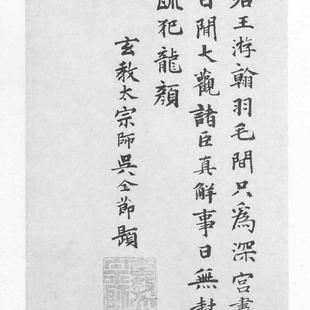 君王游翰羽毛間只為深宮晝
日閒大觀諸臣真解事日無封
疏犯龍顏
玄教大宗師吳全節題